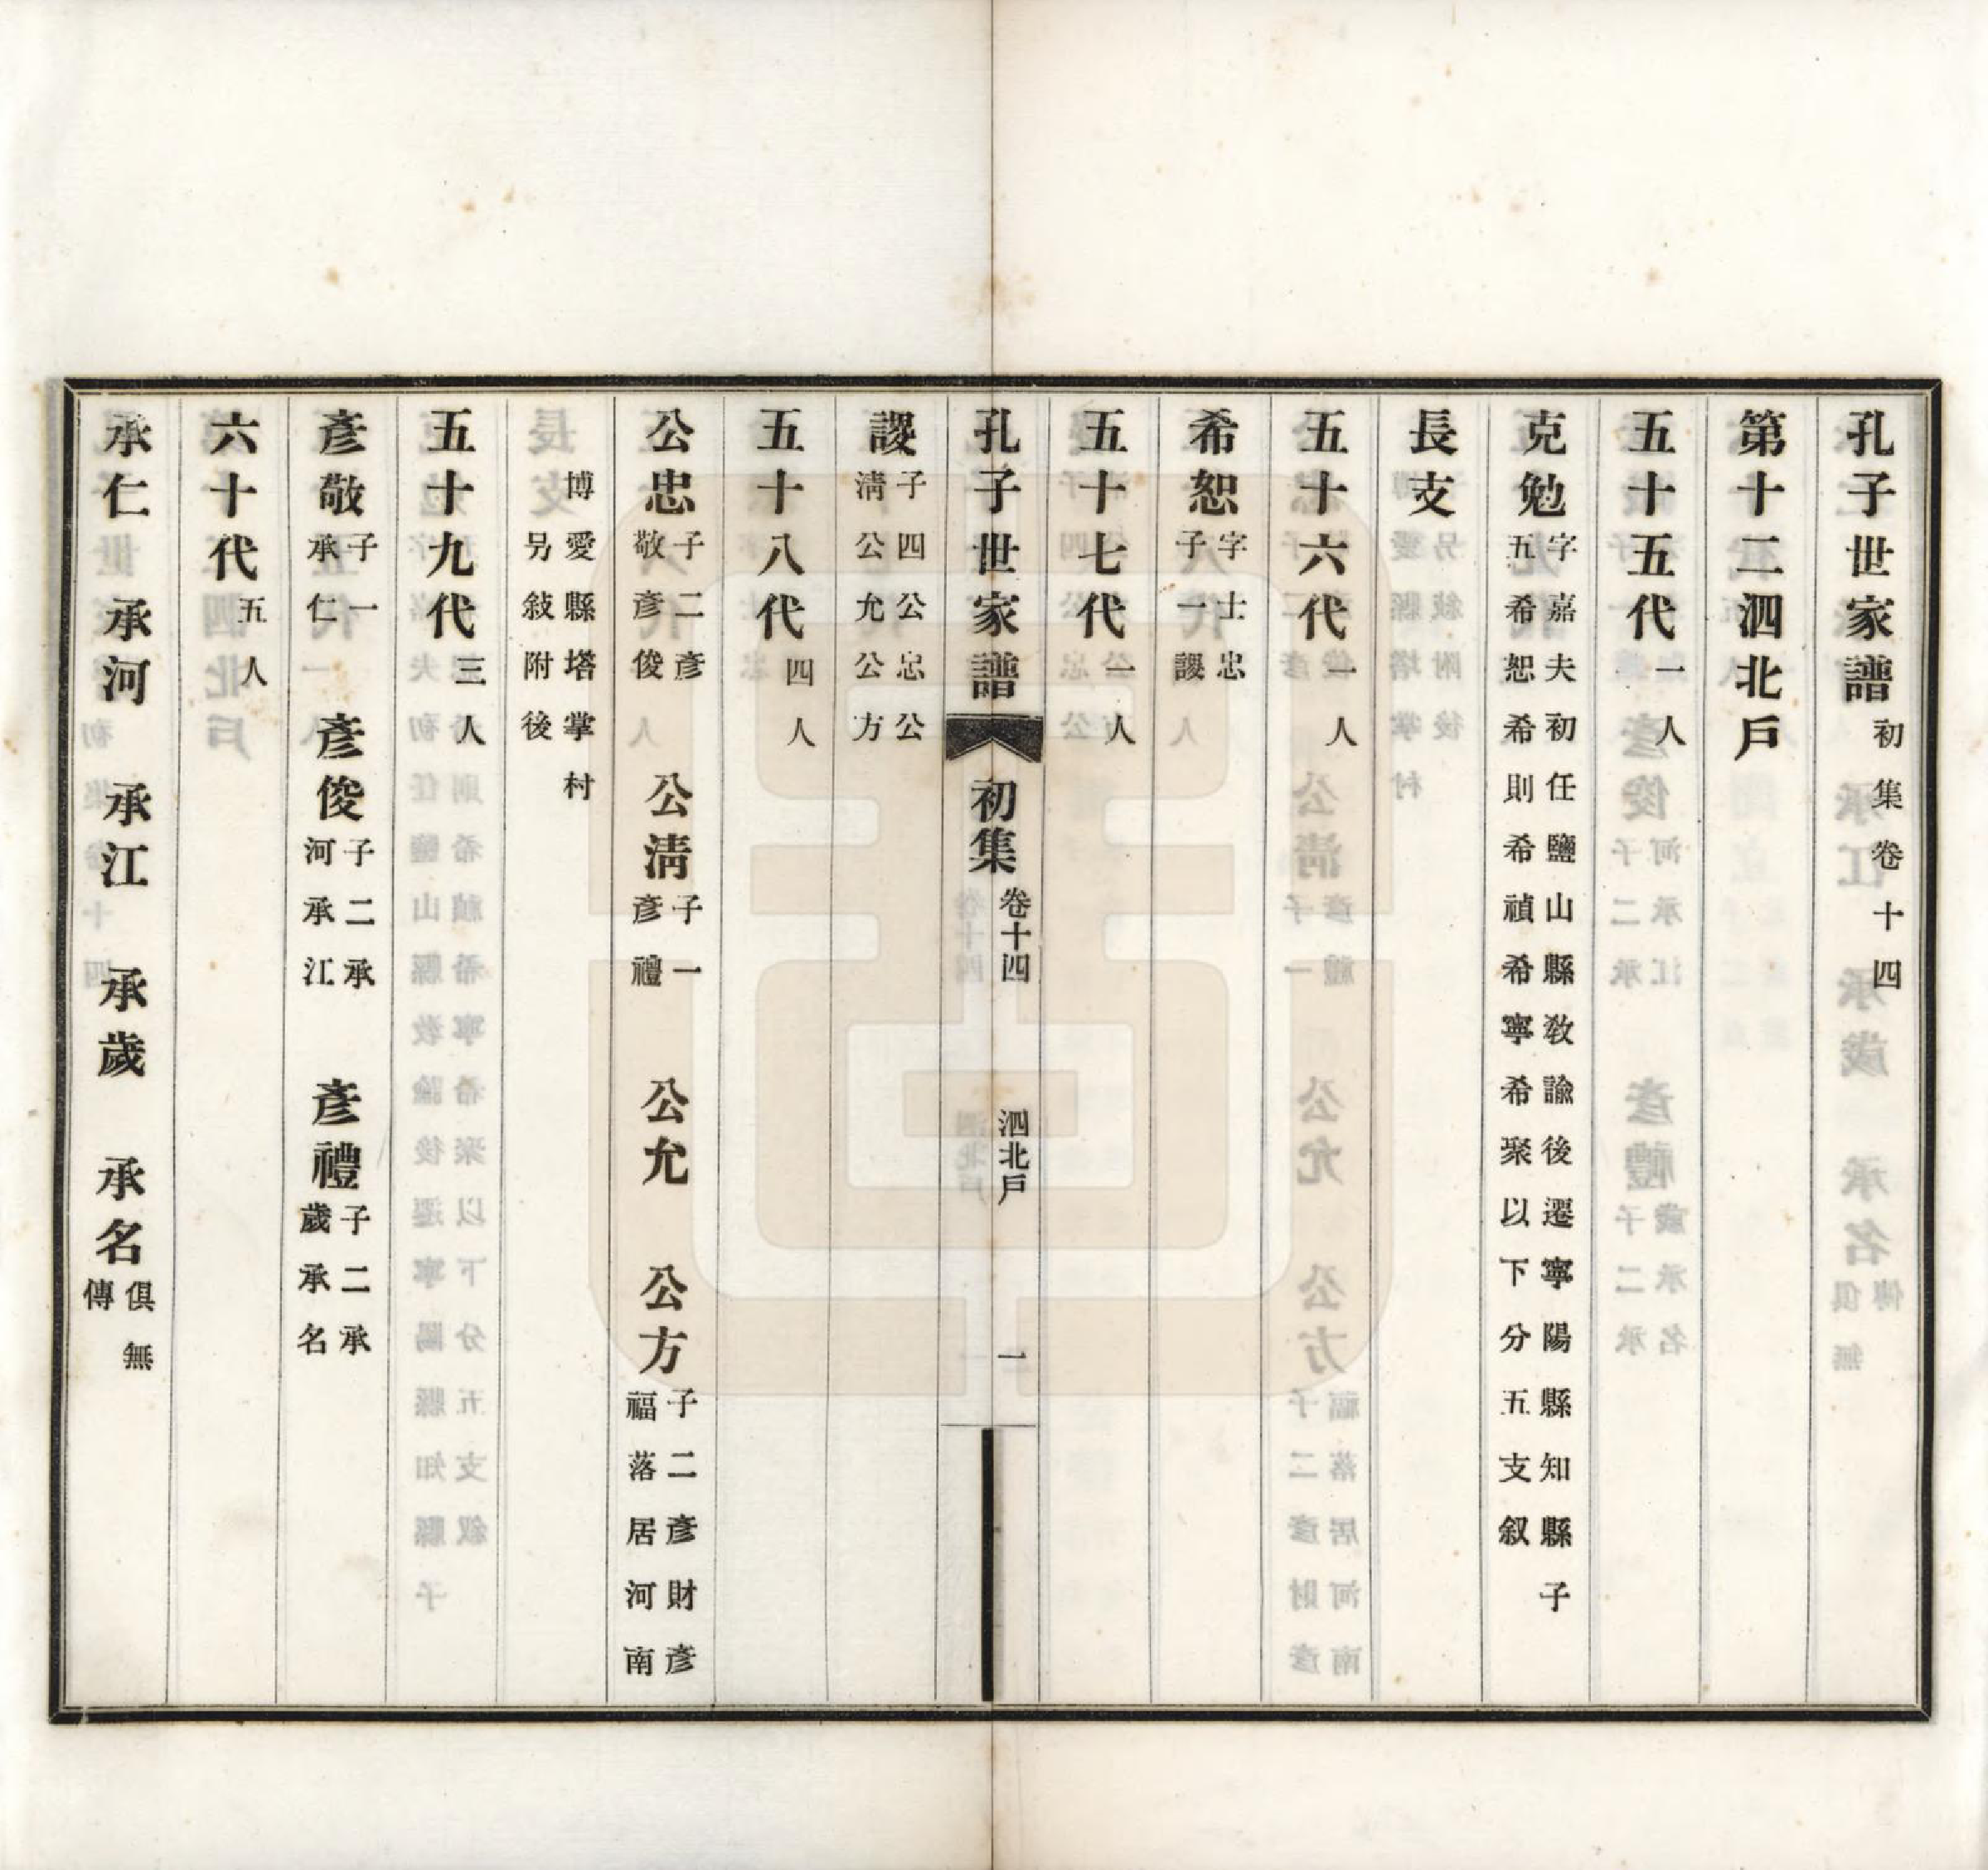 孔子世家譜初集卷十四
第十二泗北戶
五十五代一人
克勉字嘉夫初任鹽山縣教諭後遷寧陽縣知縣子
五希恕希則希禎希寧希聚以下分五支叙
長支
五十六代一人
希恕字士忠
子一謖
五十七代一人
孔子世家譜 初集 卷十四 泗北戶 一
謖子四公忠公
淸公允公方
五十八代四人
公忠子二彥
敬彥俊 公淸子一
彥禮 公允 公方子二彥財彥
福落居河南
博愛縣塔掌村
另敍附後
五十九代三人
彥敬子一
承仁 彥俊子二承
河承江 彥禮子二承
歲承名
六十代五人
承仁 承河 承江 承歲 承名俱無
傳